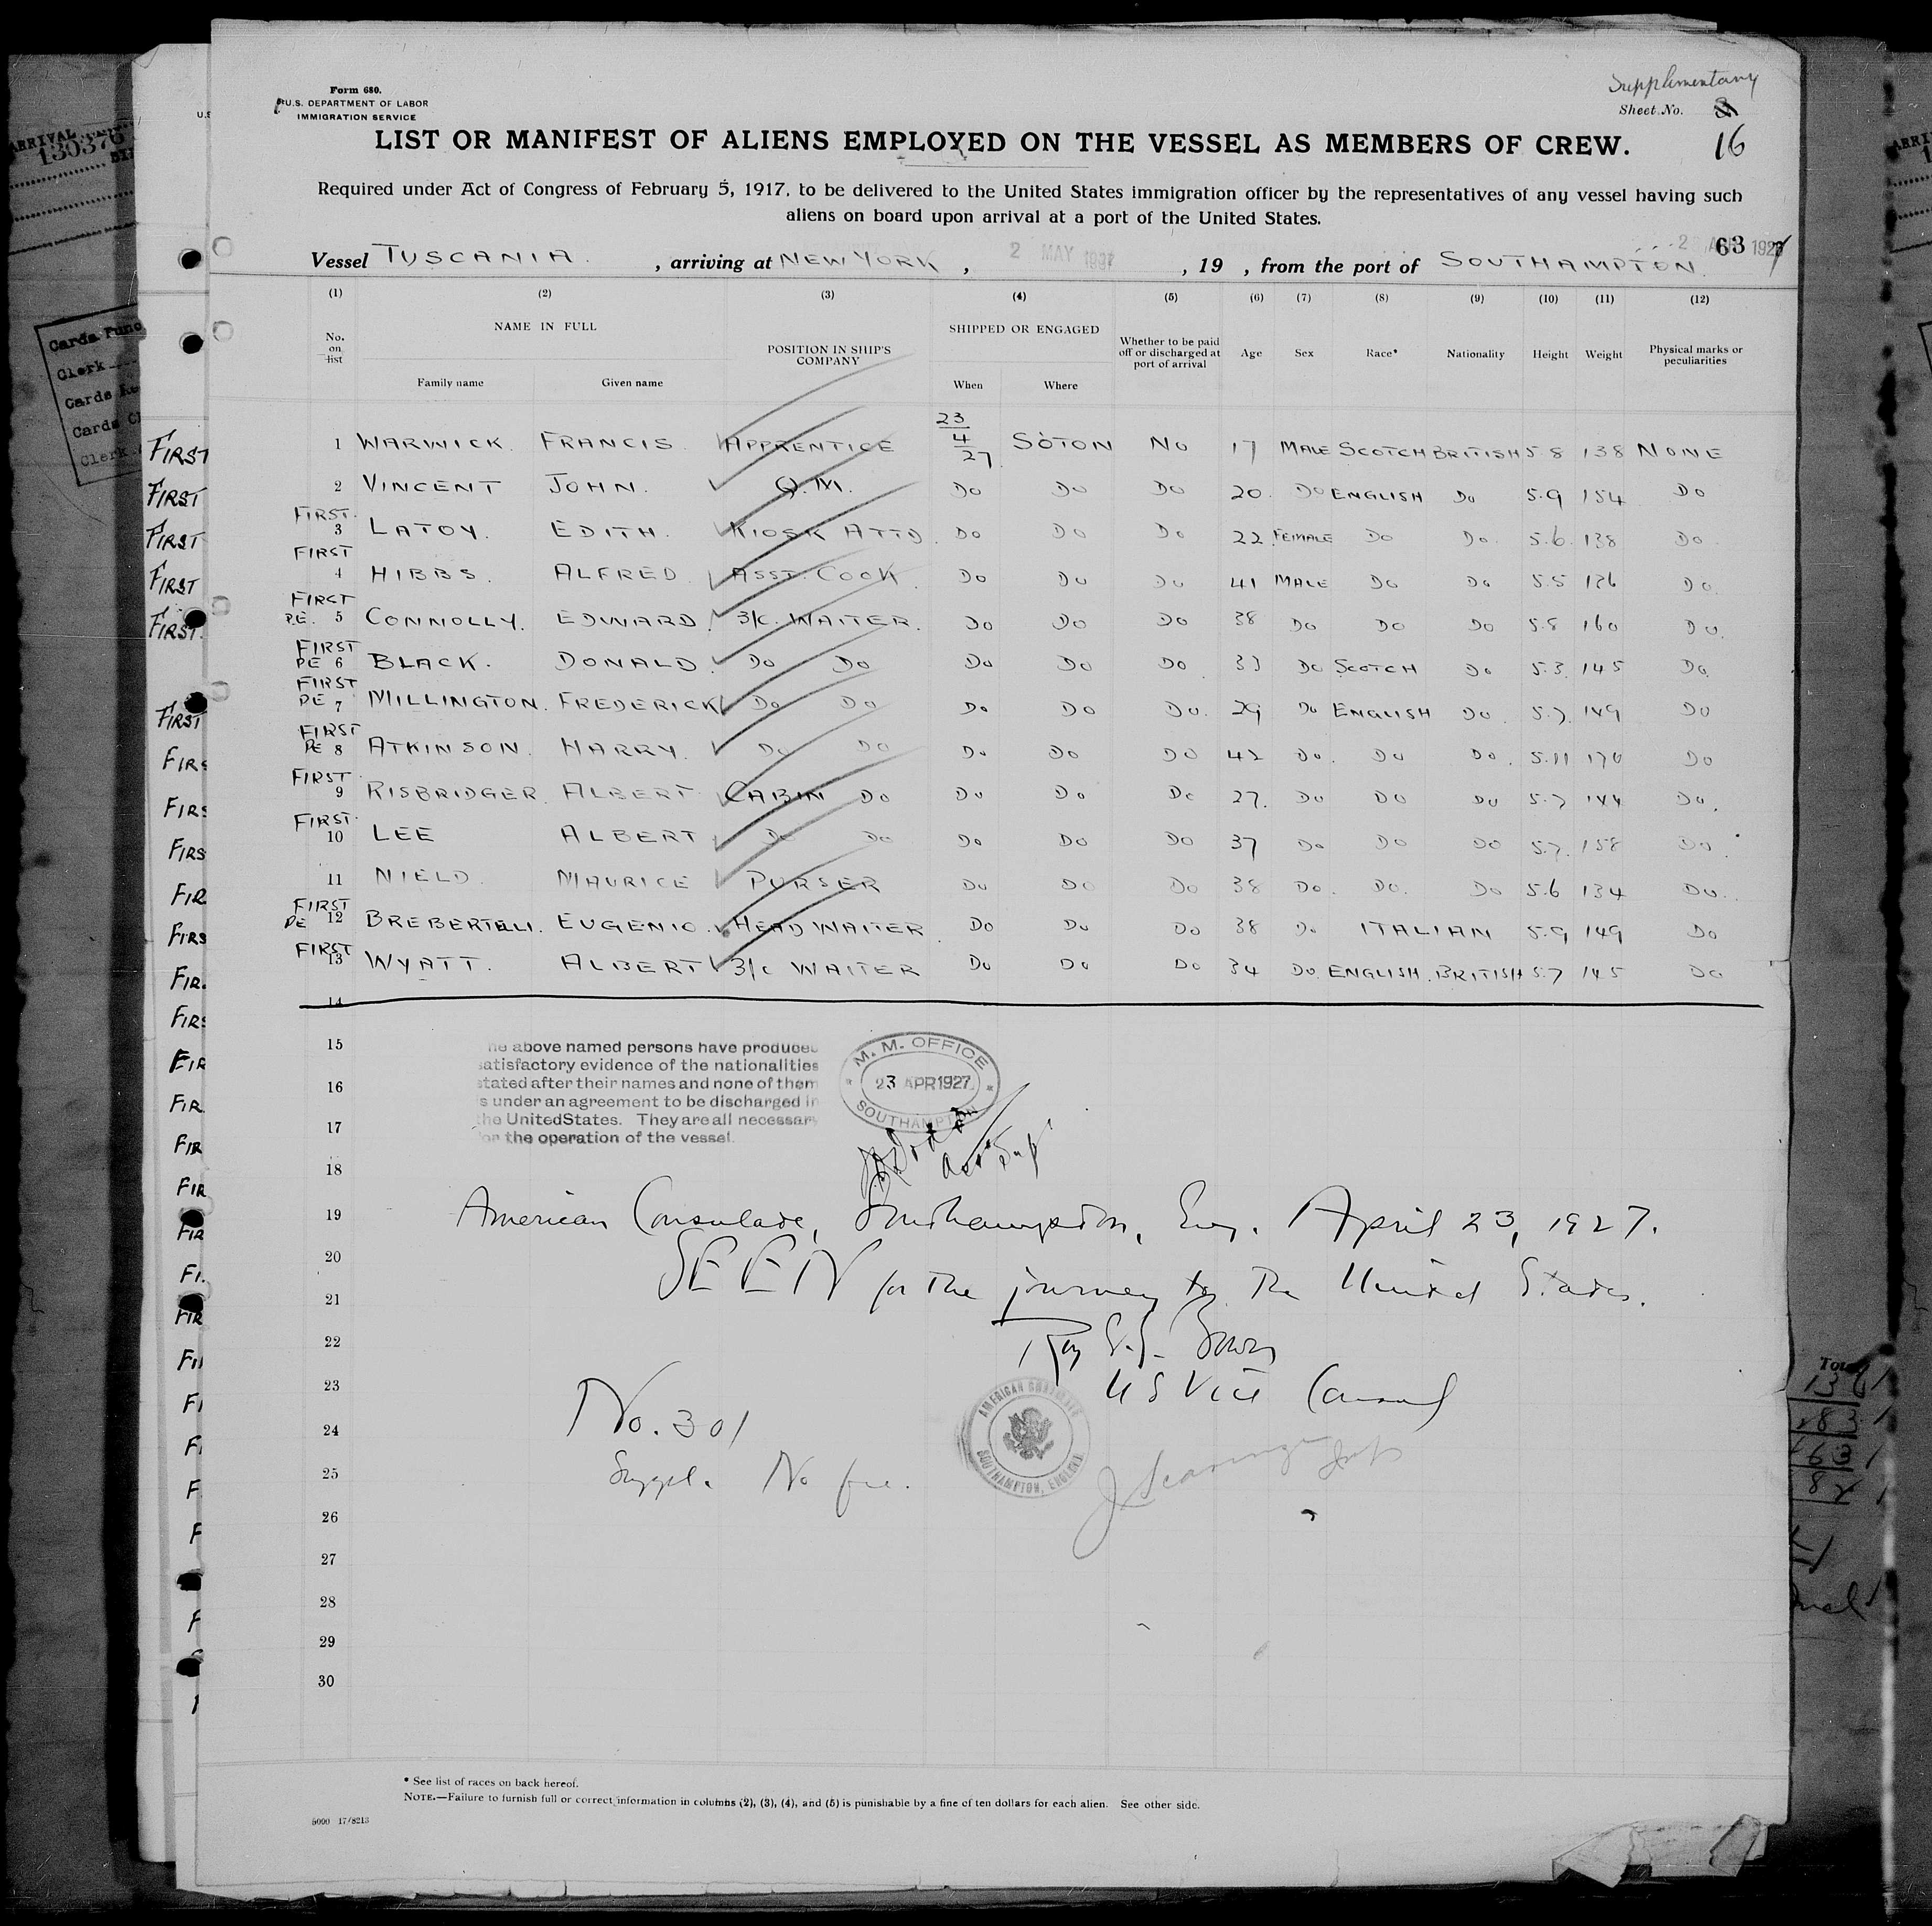 Form 680.
U.S. DEPARTMENT OF LABOR
IMMIGRATION SERVICE
Supplimentary
Sheet No.
16
LIST OR MANIFEST OF ALIENS EMPLOYED ON THE VESSEL AS MEMBERS OF CREW.
Required under Act of Congress of February 5, 1917, to be delivered to the United States immigration officer by the representatives of any vessel having such
aliens on board upon arrival at a port of the United States.
63
Vessel TUSCANIA, arriving at NEW YORK, 2 MAY 1927, 19 , from the port of SOUTHAMPTON.
(1) (2) (3) (4) (5) (6) (7) (8) (9) (10) (11) (12)
No. on list NAME IN FULL Family name Given name POSITION IN SHIP'S COMPANY SHIPPED OR ENGAGED When Where Whether to be paid off or discharged at port of arrival Age Sex Race* Nationality Height Weight Physical marks or peculiarities
1 WARWICK. FRANCIS. APPRENTICE 23/4/27 SOTON NO 17 MALE SCOTCH BRITISH 5.8 138 NONE
2 VINCENT JOHN. Q.M. DO DO DO 20. DO ENGLISH DO 5.9 154 DO
FIRST. 3 LATOY. EDITH. KIOSK ATTD. DO DO DO 22 FEMALE DO DO. 5.6. 138 DO
FIRST 4 HIBBS. ALFRED ASST. COOK. DO DO DO 41 MALE DO DO 5.5 126 DO.
FIRST PE. 5 CONNOLLY. EDWARD. 3/C. WAITER. DO DO DO 38 DO DO DO 5.8 160 DO.
FIRST PE 6 BLACK. DONALD. DO DO DO DO DO 33 DO SCOTCH DO 5.3. 145 DO.
FIRST PE 7 MILLINGTON. FREDERICK DO DO DO DO DO. 29 DO ENGLISH DO. 5.7. 149 DO
FIRST PE 8 ATKINSON. HARRY. DO DO DO DO DO 42 DO. DO DO. 5.11 170 DO
FIRST 9 RISBRIDGER. ALBERT CABIN DO DO DO DO 27. DO DO DO 5.7 144 DO.
FIRST. 10 LEE ALBERT DO DO DO DO DO 37 DO DO DO 5.7. 158 DO.
11 NIELD. MAURICE PURSER DO DO DO 38 DO. DO. DO 5.6 134 DO.
FIRST PE 12 BREBERTELLI. EUGENIO. HEAD WAITER DO DO DO 38 DO ITALIAN 5.9 149 DO
FIRST 13 WYATT. ALBERT 3/C WAITER DO DO DO 34 DO. ENGLISH. BRITISH 5.7 145 DO
14
15
16
17
18
19
20
21
22
23
24
25
26
27
28
29
30
he above named persons have produced
satisfactory evidence of the nationalities
stated after their names and none of them
is under an agreement to be discharged in
the United States. They are all necessary
for the operation of the vessel.
M. M. OFFICE
23 APR 1927
SOUTHAMPTON
American Consulate, Southampton, Eng. April 23, 1927.
SEEN for the journey to the United States.
U S Vice Consul
No. 301
Suppl. No fee.
AMERICAN CONSULATE
SOUTHAMPTON, ENGLAND
* See list of races on back hereof.
NOTE.—Failure to furnish full or correct information in columns (2), (3), (4), and (5) is punishable by a fine of ten dollars for each alien. See other side.
5000 17/8213